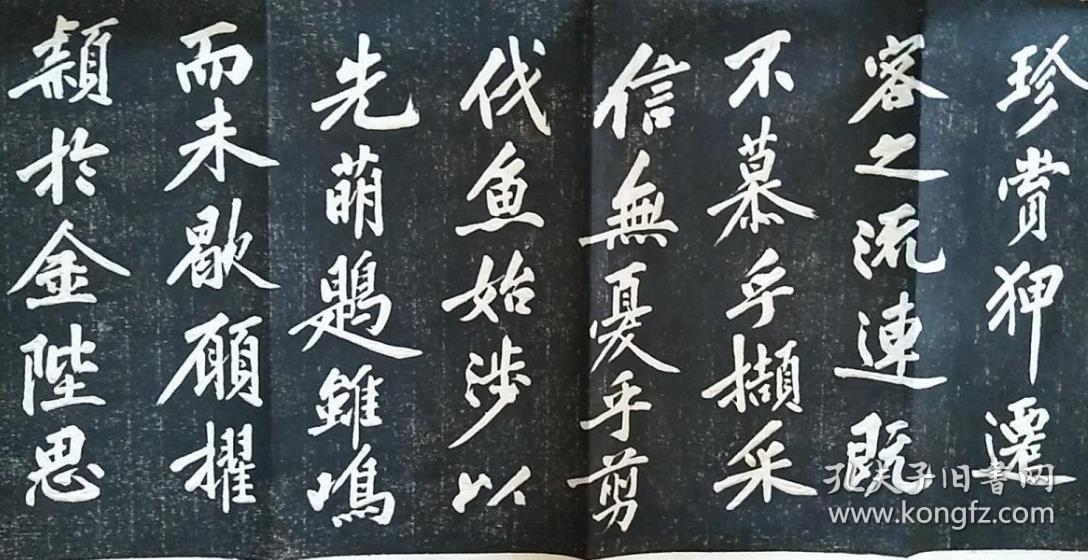 珍賞狎遷
客之流連既
不慕乎擷采
信無憂乎剪
伐魚始涉以
先萌鶗雖鳴
而未歇願擢
穎於金陛思
孔夫子旧书网
www.kongfz.com